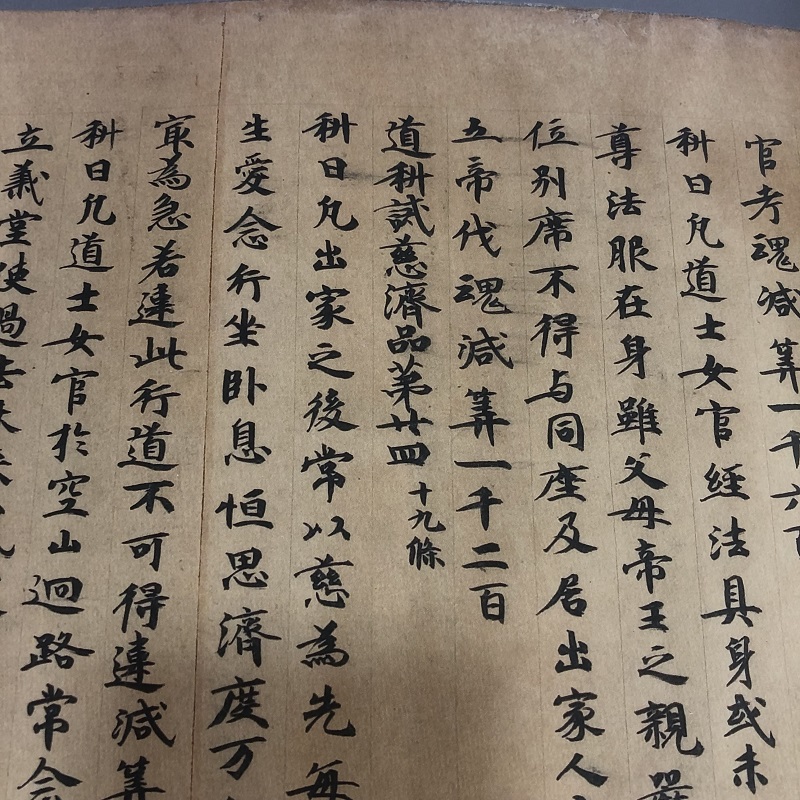 官考魂减筭一千六百
科曰凡道士女官經法具身或未
尊法服在身雖父母帝王之親
位别席不得与同座及居出家人
五帝伐魂减筭一千二百
道科試慈濟品苐廿四 十九條
科曰凡出家之後常以慈為先每
生愛念行坐卧息恒思濟度万
冣為急若違此行道不可得違减筭
科曰凡道士女官於空山迴路常念
立義堂使過去